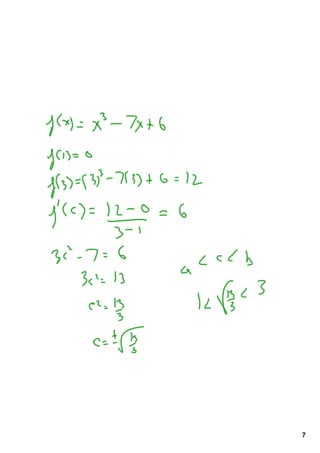 f(x) = x³ - 7x + 6
f(1) = 0
f(3) = (3)³ - 7(3) + 6 = 12
f'(c) = (12 - 0)/(3 - 1) = 6
3c² - 7 = 6
3c² = 13
c² = 13/3
c = ±√(13/3)
a < c < b
1 < √(13/3) < 3
7